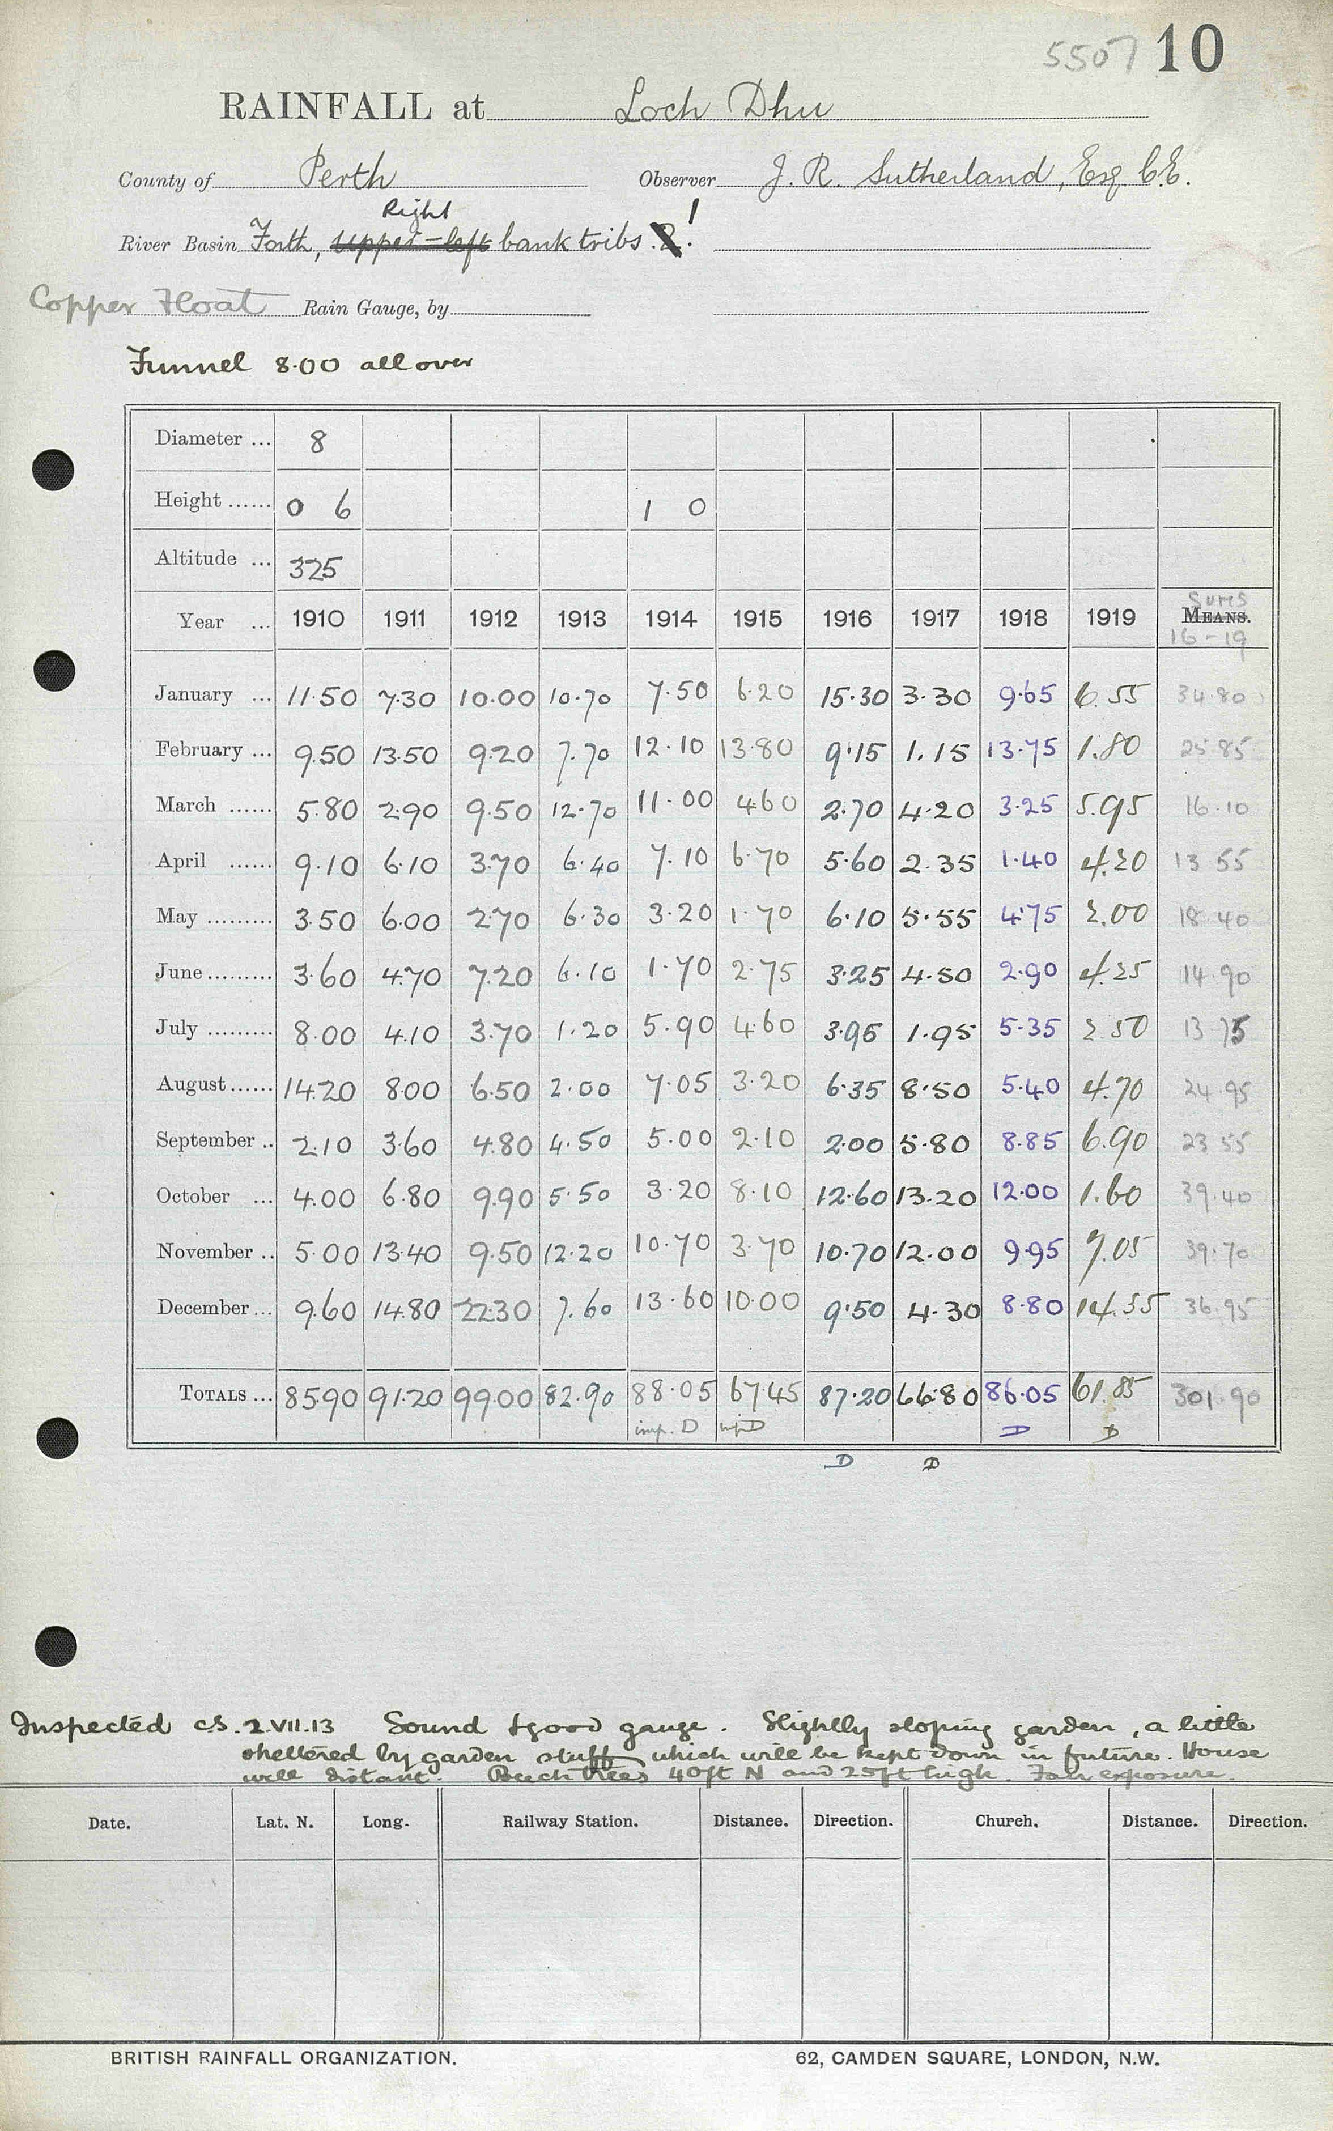 5507 10
RAINFALL at Loch Dhu
County of Perth Observer J. R. Sutherland, Esq C.E.
Right
River Basin Forth, Upper-left bank tribs. 2! !
Copper Float Rain Gauge, by
Funnel 8.00 all over
Diameter ... 8
Height ...... 0 6 1 0
Altitude ... 325
Sums
Year ... 1910 1911 1912 1913 1914 1915 1916 1917 1918 1919 MEANS.
16-19
January ... 11.50 7.30 10.00 10.70 7.50 6.20 15.30 3.30 9.65 6.55 34.80
February ... 9.50 13.50 9.20 7.70 12.10 13.80 9.15 1.15 13.75 1.80 25.85
March ...... 5.80 2.90 9.50 12.70 11.00 4.60 2.70 4.20 3.25 5.95 16.10
April ...... 9.10 6.10 3.70 6.40 7.10 6.70 5.60 2.35 1.40 4.20 13.55
May ......... 3.50 6.00 2.70 6.30 3.20 1.70 6.10 5.55 4.75 2.00 18.40
June ......... 3.60 4.70 7.20 6.10 1.70 2.75 3.25 4.50 2.90 4.25 14.90
July ......... 8.00 4.10 3.70 1.20 5.90 4.60 3.95 1.95 5.35 2.50 13.75
August...... 14.20 8.00 6.50 2.00 7.05 3.20 6.35 8.50 5.40 4.70 24.95
September .. 2.10 3.60 4.80 4.50 5.00 2.10 2.00 5.80 8.85 6.90 23.55
October ... 4.00 6.80 9.90 5.50 3.20 8.10 12.60 13.20 12.00 1.60 39.40
November .. 5.00 13.40 9.50 12.20 10.70 3.70 10.70 12.00 9.95 7.05 39.70
December ... 9.60 14.80 22.30 7.60 13.60 10.00 9.50 4.30 8.80 14.35 36.95
TOTALS ... 85.90 91.20 99.00 82.90 88.05 67.45 87.20 66.80 86.05 61.85 301.90
imp. D D D D
D D
Inspected CS. 2.VII.13 Sound & good gauge. Slightly sloping garden, a little
sheltered by garden stuff which will be kept down in future. House
well distant. Beech trees 40ft N and 25ft high. Fair exposure.
Date. Lat. N. Long. Railway Station. Distance. Direction. Church. Distance. Direction.
BRITISH RAINFALL ORGANIZATION. 62, CAMDEN SQUARE, LONDON, N.W.